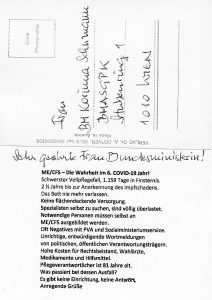 Frau
BM Korinna Schumann
BMASGPK
Stubenring 1
1010 Wien
Sehr geehrte Frau Bundesministerin!
ME/CFS – Die Wahrheit im 6. COVID-19 Jahr!
Schwerster Vollpflegefall, 1.159 Tage in Finsternis.
2 ½ Jahre bis zur Anerkennung des Impfschadens.
Das Bett nie mehr verlassen.
Keine flächendeckende Versorgung.
Spezialisten selbst zu suchen, sind völlig überlastet.
Notwendige Personen müssen selbst an
ME/CFS ausgebildet werden.
Oft Negatives mit PVA und Sozialministeriumservice.
Unrichtige, entwürdigende Wortmeldungen
von politischen, öffentlichen Verantwortungsträgern.
Hohe Kosten für Rechtsbeistand, Wahlärzte,
Medikamente und Hilfsmittel.
Pflegeverantwortlicher ist 81 Jahre alt.
Was passiert bei dessen Ausfall?
Es gibt keine Einrichtung, keine Antwort,
Anregende Grüße